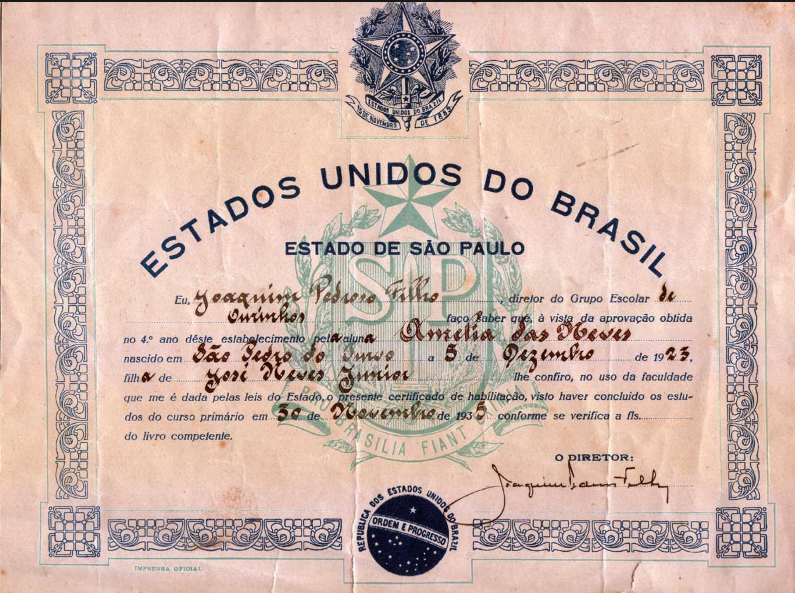 ESTADOS UNIDOS DO BRAZIL
15 DE NOVEMBRO DE 1889
ESTADOS UNIDOS DO BRASIL
ESTADO DE SÃO PAULO
SP
Eu, Joaquim Pedroso Filho, diretor do Grupo Escolar de
Ourinhos faço saber que, à vista da aprovação obtida
no 4.º ano dêste estabelecimento pela aluna Amelia das Neves
nascido em São Pedro do Turvo a 5 de Dezembro de 1923,
filha de José Neves Junior lhe confiro, no uso da faculdade
que me é dada pelas leis do Estado, o presente certificado de habilitação, visto haver concluido os estu-
dos do curso primário em 30 de Novembro de 1935 conforme se verifica a fls.
do livro competente.
BRASILIA FIANT
O DIRETOR:
Joaquim Filho
REPUBLICA DOS ESTADOS UNIDOS DO BRASIL
ORDEM E PROGRESSO
IMPRENSA OFICIAL